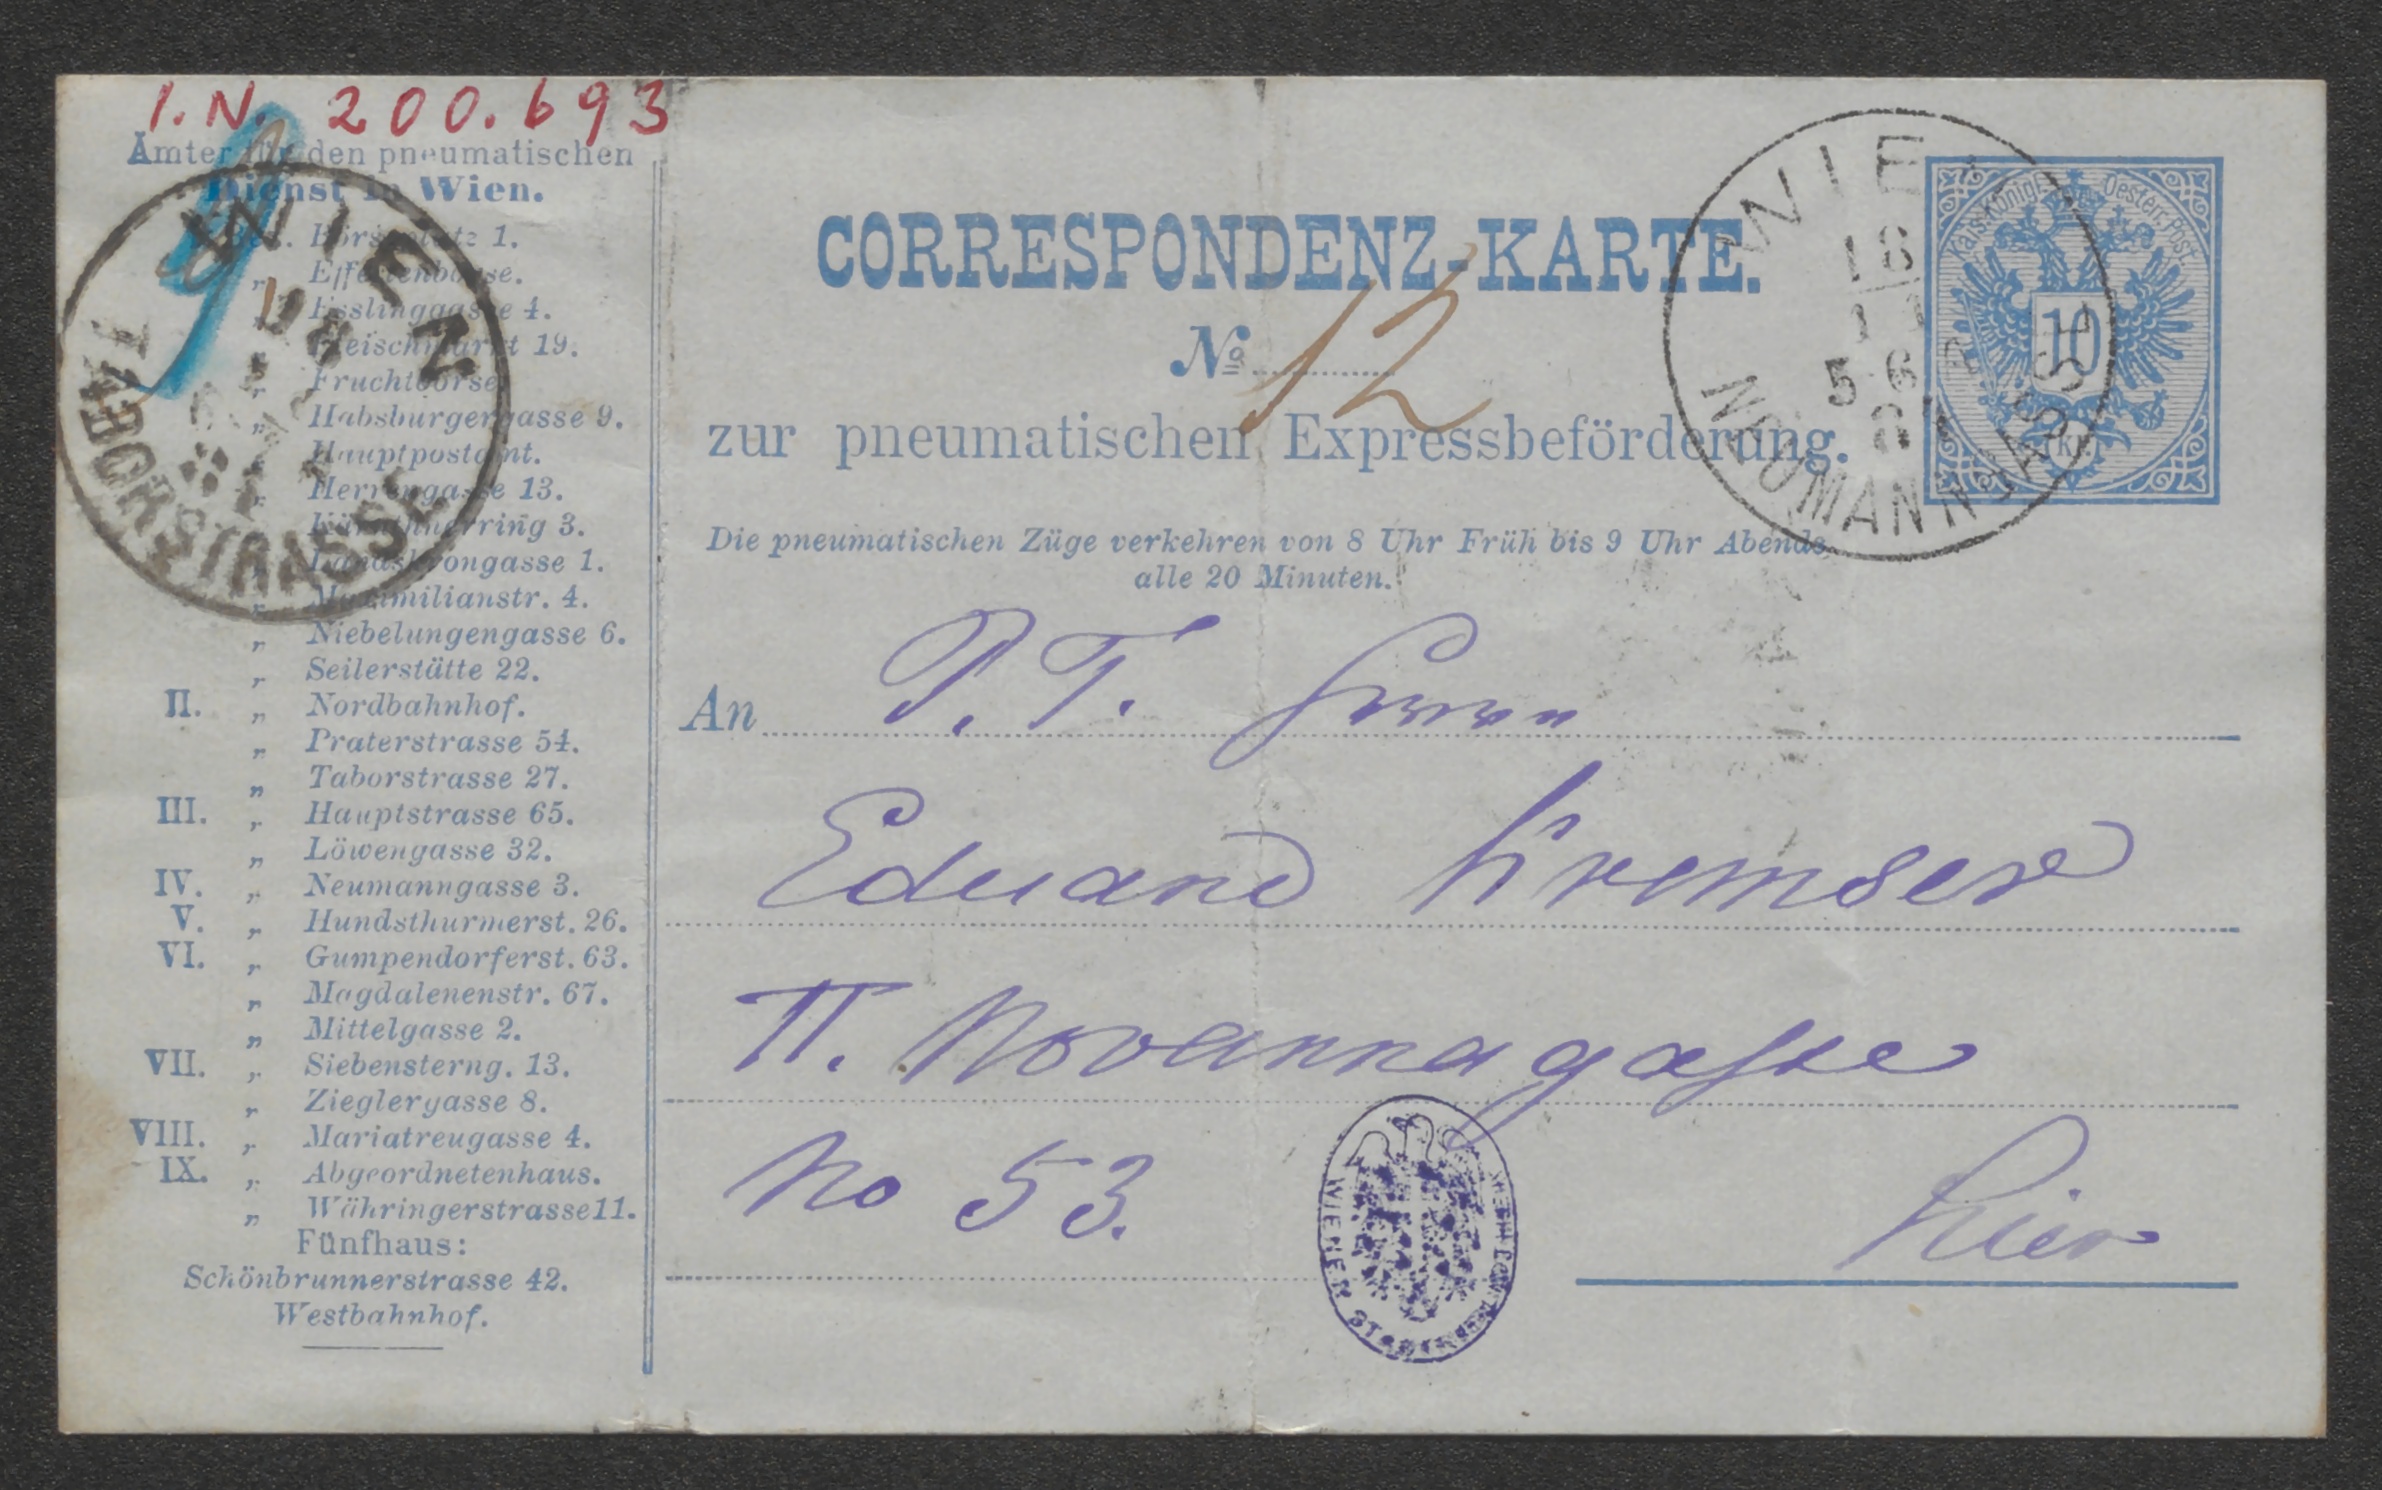 I.N. 200.693
Ämter für den pneumatischen
Dienst in Wien.
Börseplatz 1.
„ Effectenbörse.
„ Esslinggasse 4.
Fleischmarkt 19.
„ Fruchtbörse
„ Habsburgergasse 9.
„ Hauptpostamt.
„ Herrengasse 13.
„ Kärnthnerring 3.
„ Landskrongasse 1.
„ Maximilianstr. 4.
„ Niebelungengasse 6.
„ Seilerstätte 22.
II. „ Nordbahnhof.
„ Praterstrasse 54.
„ Taborstrasse 27.
III. „ Hauptstrasse 65.
„ Löwengasse 32.
IV. „ Neumanngasse 3.
V. „ Hundsthurmerst. 26.
VI. „ Gumpendorferst. 63.
„ Magdalenenstr. 67.
„ Mittelgasse 2.
VII. „ Siebensterng. 13.
„ Zieglergasse 8.
VIII. „ Mariatreugasse 4.
IX. „ Abgeordnetenhaus.
„ Währingerstrasse 11.
Fünfhaus:
Schönbrunnerstrasse 42.
Westbahnhof.
WIEN
TABORSTRASSE
CORRESPONDENZ-KARTE.
No 12
zur pneumatischen Expressbeförderung.
Die pneumatischen Züge verkehren von 8 Uhr Früh bis 9 Uhr Abends
alle 20 Minuten.
WIEN
NEUMANNGASSE
Kais. Königl. Oesterr. Post
10
kr.
An P. T. Herrn
Eduard Kremser
II. Novaragasse
No 53.
hier
WIENER STADTBIBLIOTHEK